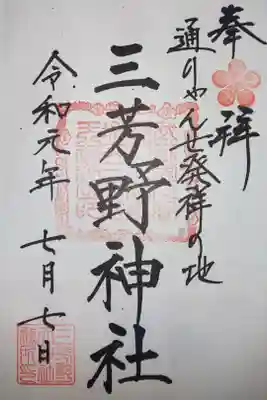 奉拝
通りゃんせ発祥の地
三芳野神社
令和元年七月七日